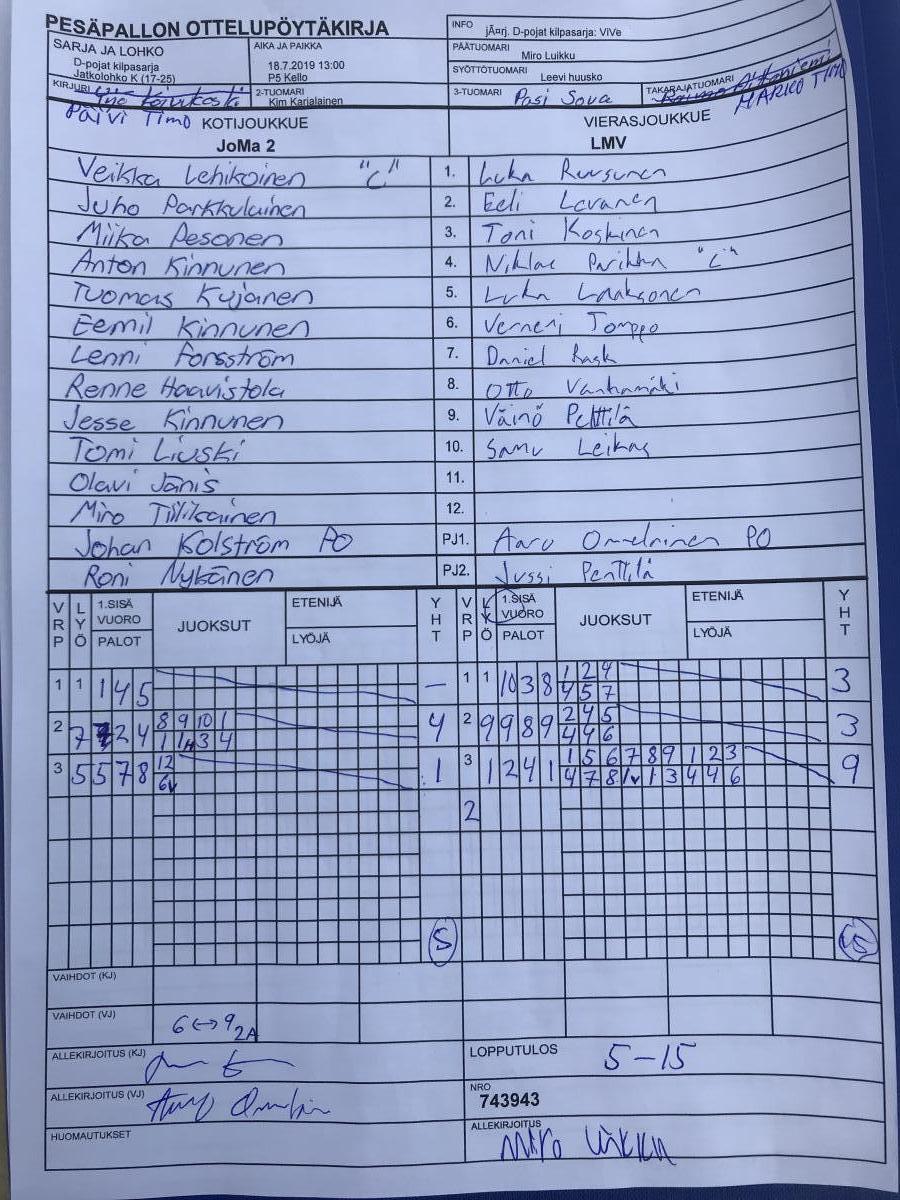 PESÄPALLON OTTELUPÖYTÄKIRJA
SARJA JA LOHKO
D-pojat kilpasarja
Jatkolohko K (17-25)
AIKA JA PAIKKA
18.7.2019 13:00
P5 Kello
INFO jÃ¤rj. D-pojat kilpasarja: ViVe
PÄÄTUOMARI
Miro Luikku
SYÖTTÖTUOMARI
Leevi huusko
KIRJURI
Päivi Timo
2-TUOMARI
Kim Karjalainen
3-TUOMARI Pasi Sova
TAKARAJATUOMARI
MARKO TIMO
KOTIJOUKKUE
JoMa 2
VIERASJOUKKUE
LMV
Veikka Lehikoinen "C" 1. Luka Ruusunen
Juho Parkkulainen 2. Eeli Lovanen
Miika Pesonen 3. Toni Koskinen
Anton Kinnunen 4. Niklas Parikka "C"
Tuomas Kujanen 5. Luka Laaksonen
Eemil Kinnunen 6. Verneri Tomppo
Lenni Forsström 7. Daniel Rask
Renne Haavistola 8. Otto Vanhamäki
Jesse Kinnunen 9. Väinö Penttilä
Tomi Liuski 10. Samu Leikas
Olavi Jänis 11.
Miro Tiilikainen 12.
Johan Kolström PO PJ1. Aaru PO
Roni Nykänen PJ2. Jussi Penttilä
VRP LYÖ 1.SISÄ VUORO PALOT JUOKSUT ETENIJÄ LYÖJÄ YHT VRP LYÖ 1.SISÄ VUORO PALOT JUOKSUT ETENIJÄ LYÖJÄ YHT
1 1 1 4 5 – 1 1 10 3 8 1 2 4 3
4 5 7
2 7 2 4 8 9 10 1 4 2 9 9 8 9 2 4 5 3
1 3 4 4 4 6
3 5 5 7 8 12 1 3 1 2 4 1 1 5 6 7 8 9 1 2 3 9
6v 4 7 8 1v 1 3 4 4 6
2
5 15
VAIHDOT (KJ)
VAIHDOT (VJ)
6 ↔ 9 2A
ALLEKIRJOITUS (KJ)
LOPPUTULOS 5-15
ALLEKIRJOITUS (VJ)
NRO
743943
HUOMAUTUKSET
ALLEKIRJOITUS